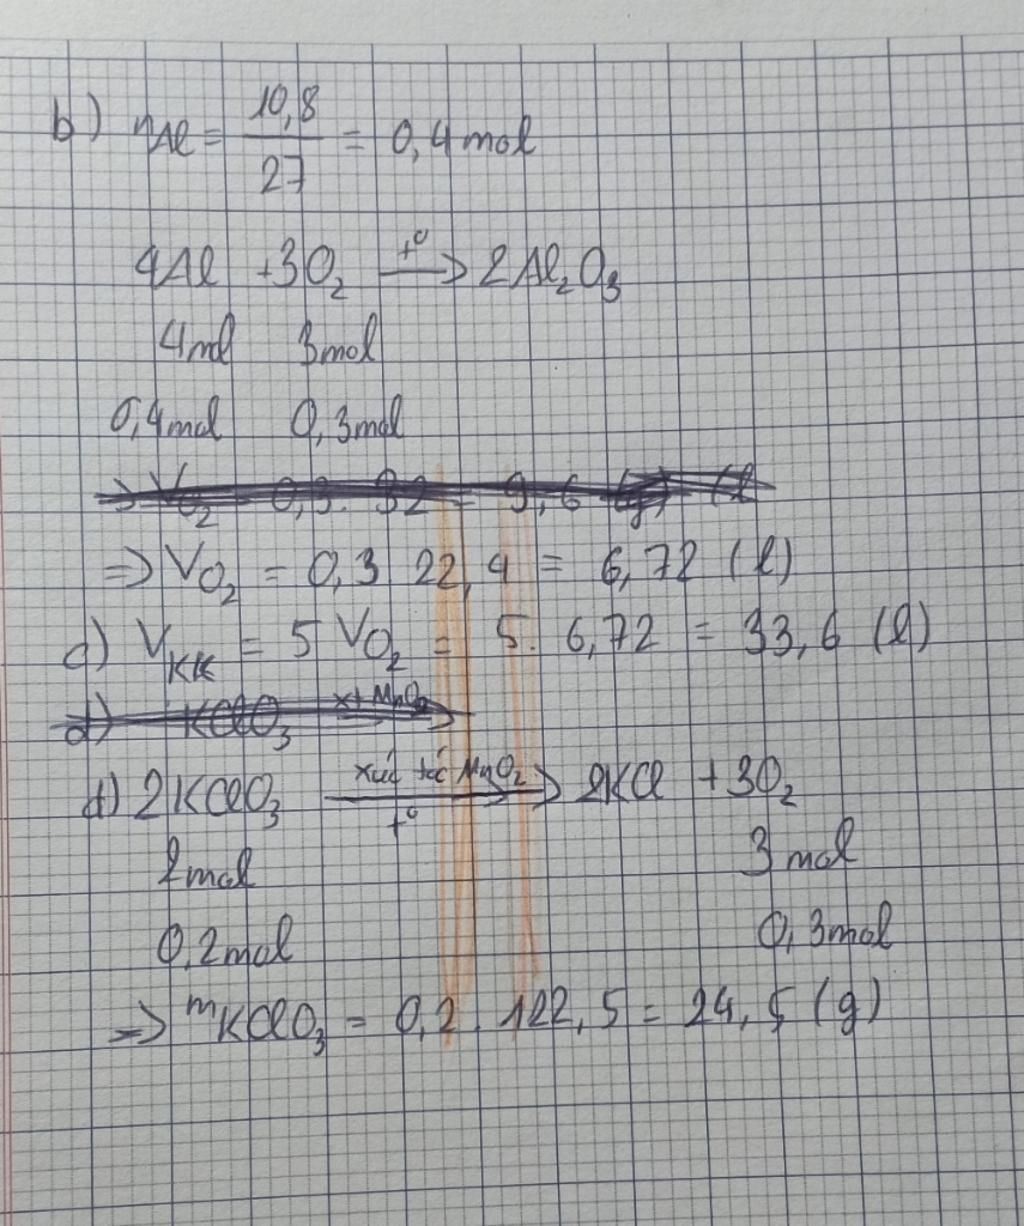 b) nAl = 10,8 / 27 = 0,4 mol
4Al + 3O₂ t° → 2Al₂O₃
4mol 3mol
0,4mol 0,3mol
=> VO₂ = 0,3. 32 = 9,6 (l
=> VO₂ = 0,3 22,4 = 6,72 (l)
c) VKK = 5 VO₂ = 5. 6,72 = 33,6 (l)
d) KClO₃ xt MnO₂ →
d) 2KClO₃ xúc tác MnO₂ → t° 2KCl + 3O₂
2mol 3 mol
0,2mol 0,3mol
=> mKClO₃ = 0,2. 122,5 = 24,5 (g)